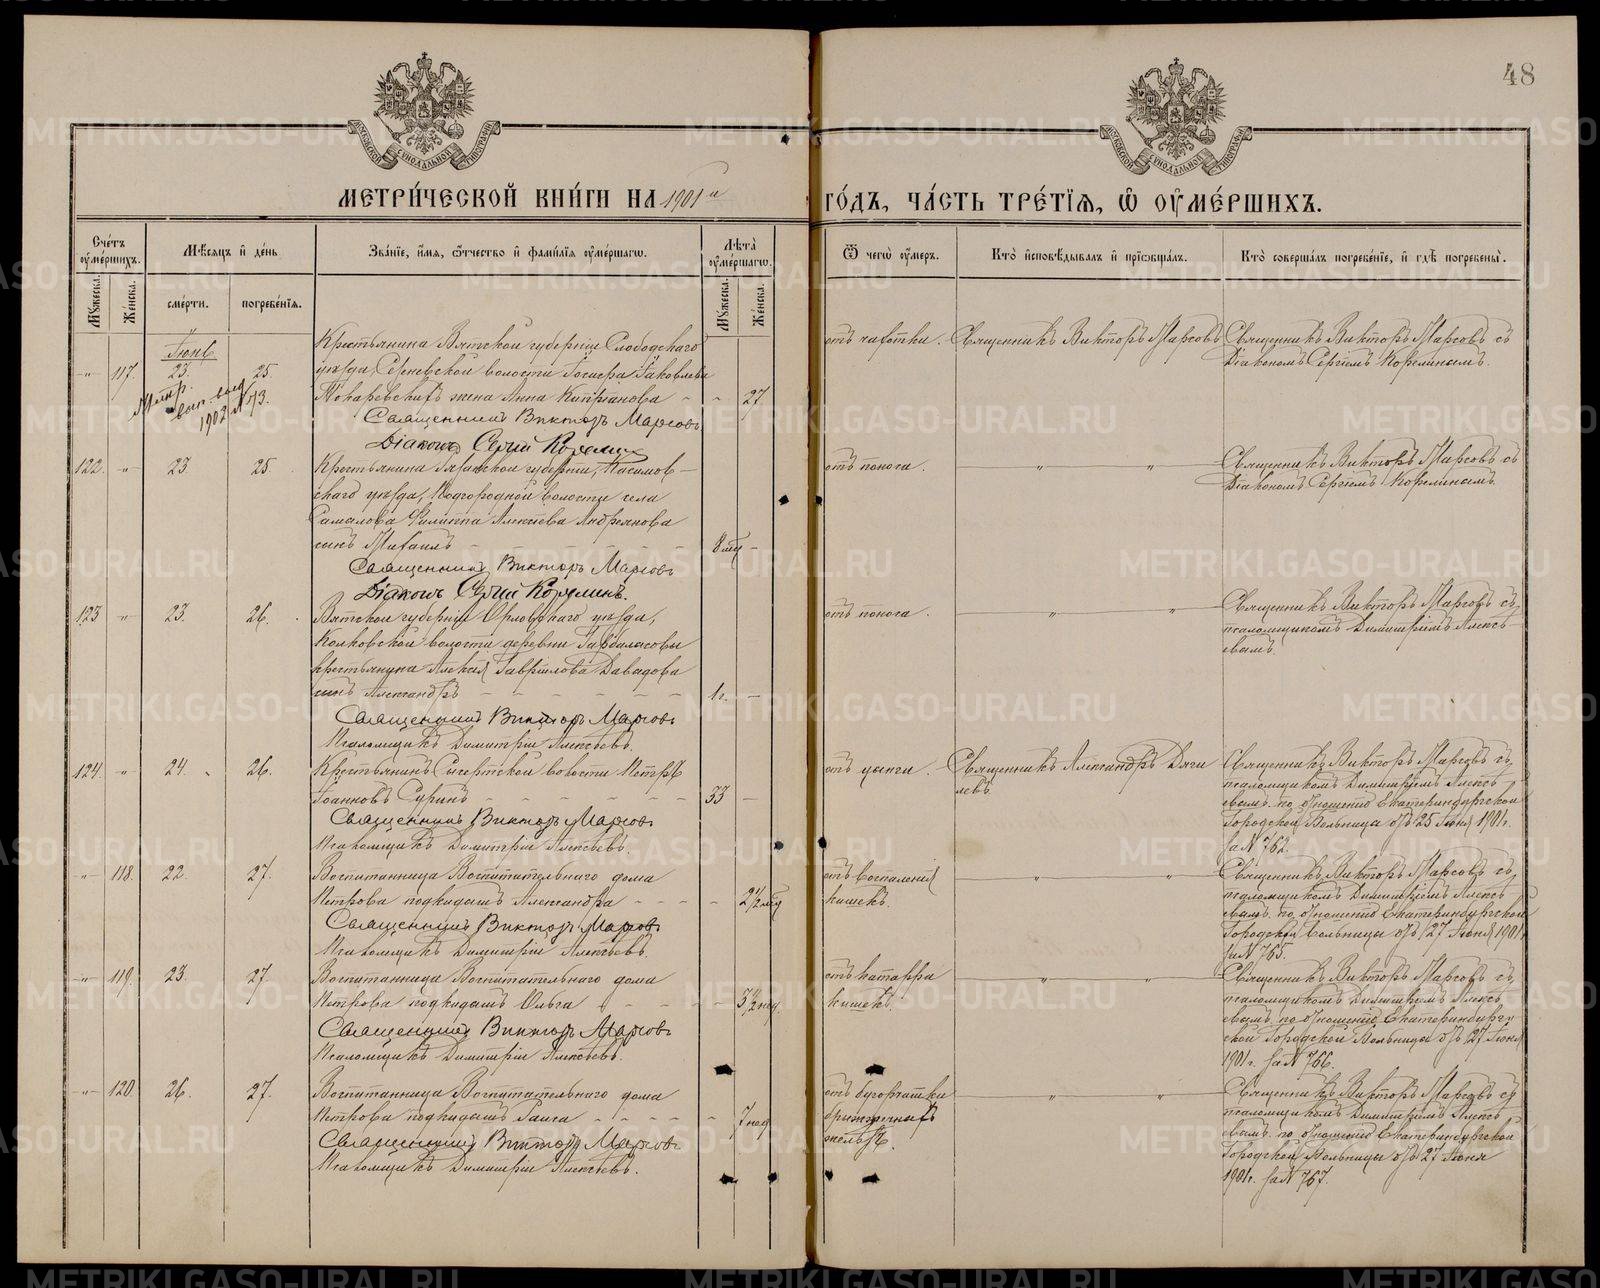 48
МОСКОВСКОЙ СѴНОДАЛЬНОЙ ТИПОГРАФІИ
МОСКОВСКОЙ СѴНОДАЛЬНОЙ ТИПОГРАФІИ
МЕТРИ́ЧЕСКОЙ КНИ́ГИ НА 1901й ГО́ДЪ, ЧА́СТЬ ТРЕ́ТІѦ, Ѡ҆ ОУ҆МЕ́РШИХЪ.
Сче́тъ оу҆ме́ршихъ.
Мꙋ́жеска.
Же́нска.
Мѣ́сѧцъ и҆ де́нь
сме́рти.
погребе́нїѧ.
Зва́нїе, и҆́мѧ, ѻ҆́тчество и҆ фами́лїѧ оу҆ме́ршагѡ.
Лѣ́та оу҆ме́ршагѡ.
Мꙋ́жеска.
Же́нска.
Ѿ чегѡ̀ оу҆́меръ.
Кто̀ и҆сповѣ́дывалъ и҆ прїѡбща́лъ.
Кто̀ соверша́лъ погребе́нїе, и҆ гдѣ̀ погребены̀.
Іюнь
-"- 117. 23. 25.
Метр. вып. выд. 1903 №73.
Крестьянина Вятской губерніи Слободскаго
уѣзда, волости Іаковлева
Токаревскихъ жена Анна Кипріанова - - 27
Священникъ Викторъ Марсовъ
Діаконъ Сергій Корелинъ
отъ чахотки.
Священникъ Викторъ Марсовъ
Священникъ Викторъ Марсовъ съ
Діакономъ Сергіемъ Корелинымъ.
122. -"- 23 25.
Крестьянина Рязанской губерніи, Касимов-
скаго уѣзда, Подгородной волости села
Филиппа Алексѣева Андреянова
сынъ Михаилъ - - - 8 мѣс -
Священникъ Викторъ Марсовъ
Діаконъ Сергій Корелинъ.
отъ поноса.
" "
Священникъ Викторъ Марсовъ съ
Діакономъ Сергіемъ Корелинымъ.
123 -"- 23. 26.
Вятской губерніи Орловскаго уѣзда,
волости деревни
крестьянина Алексія Гавріилова Давыдова
сынъ Александръ - - - 1 г. -
Священникъ Викторъ Марсовъ
Псаломщикъ Димитрій Алексѣевъ.
отъ поноса.
" "
Священникъ Викторъ Марсовъ съ
псаломщикомъ Димитріемъ Алексѣ-
евымъ.
124. -"- 24. 26.
Крестьянинъ Сысертской волости Петръ
Іоанновъ Суринъ - - - 33 -
Священникъ Викторъ Марсовъ
Псаломщикъ Димитрій Алексѣевъ.
отъ цынги.
Священникъ Александръ Дяги
левъ.
Священникъ Викторъ Марсовъ съ
псаломщикомъ Димитріемъ Алексѣ
евымъ. по отношенію Екатеринбургской
Городской Больницы отъ 25 Іюня 1901 г.
за № 762.
-"- 118. 22. 27.
Воспитанница Воспитательнаго дома
Петрова подкидышъ Александра - - - 2½ мѣс
Священникъ Викторъ Марсовъ
Псаломщикъ Димитрій Алексѣевъ.
отъ воспаленія
кишекъ.
" "
Священникъ Викторъ Марсовъ съ
псаломщикомъ Димитріемъ Алексѣ
евымъ. по отношенію Екатеринбургской
Городской Больницы отъ 27 Іюня 1901 г.
за № 765.
-"- 119. 23. 27
Воспитанница Воспитательнаго дома
Петрова подкидышъ Ольга - - - 3½ нед
Священникъ Викторъ Марсовъ
Псаломщикъ Димитрій Алексѣевъ.
отъ катарра
кишекъ.
" "
Священникъ Викторъ Марсовъ съ
псаломщикомъ Димитріемъ Алексѣ
евымъ. по отношенію Екатеринбург-
ской Городской Больницы отъ 27 Іюня
1901 г. за № 766.
-"- 120. 26. 27.
Воспитанница Воспитательнаго дома
Петрова подкидышъ Раиса - - - 7 нед
Священникъ Викторъ Марсовъ
Псаломщикъ Димитрій Алексѣевъ.
отъ бугорчатки
брыжеечныхъ
железъ.
" "
Священникъ Викторъ Марсовъ съ
псаломщикомъ Димитріемъ Алексѣ
евымъ. по отношенію Екатеринбургской
Городской Больницы отъ 27 Іюня
1901 г. за № 767.
METRIKI.GASO-URAL.RU